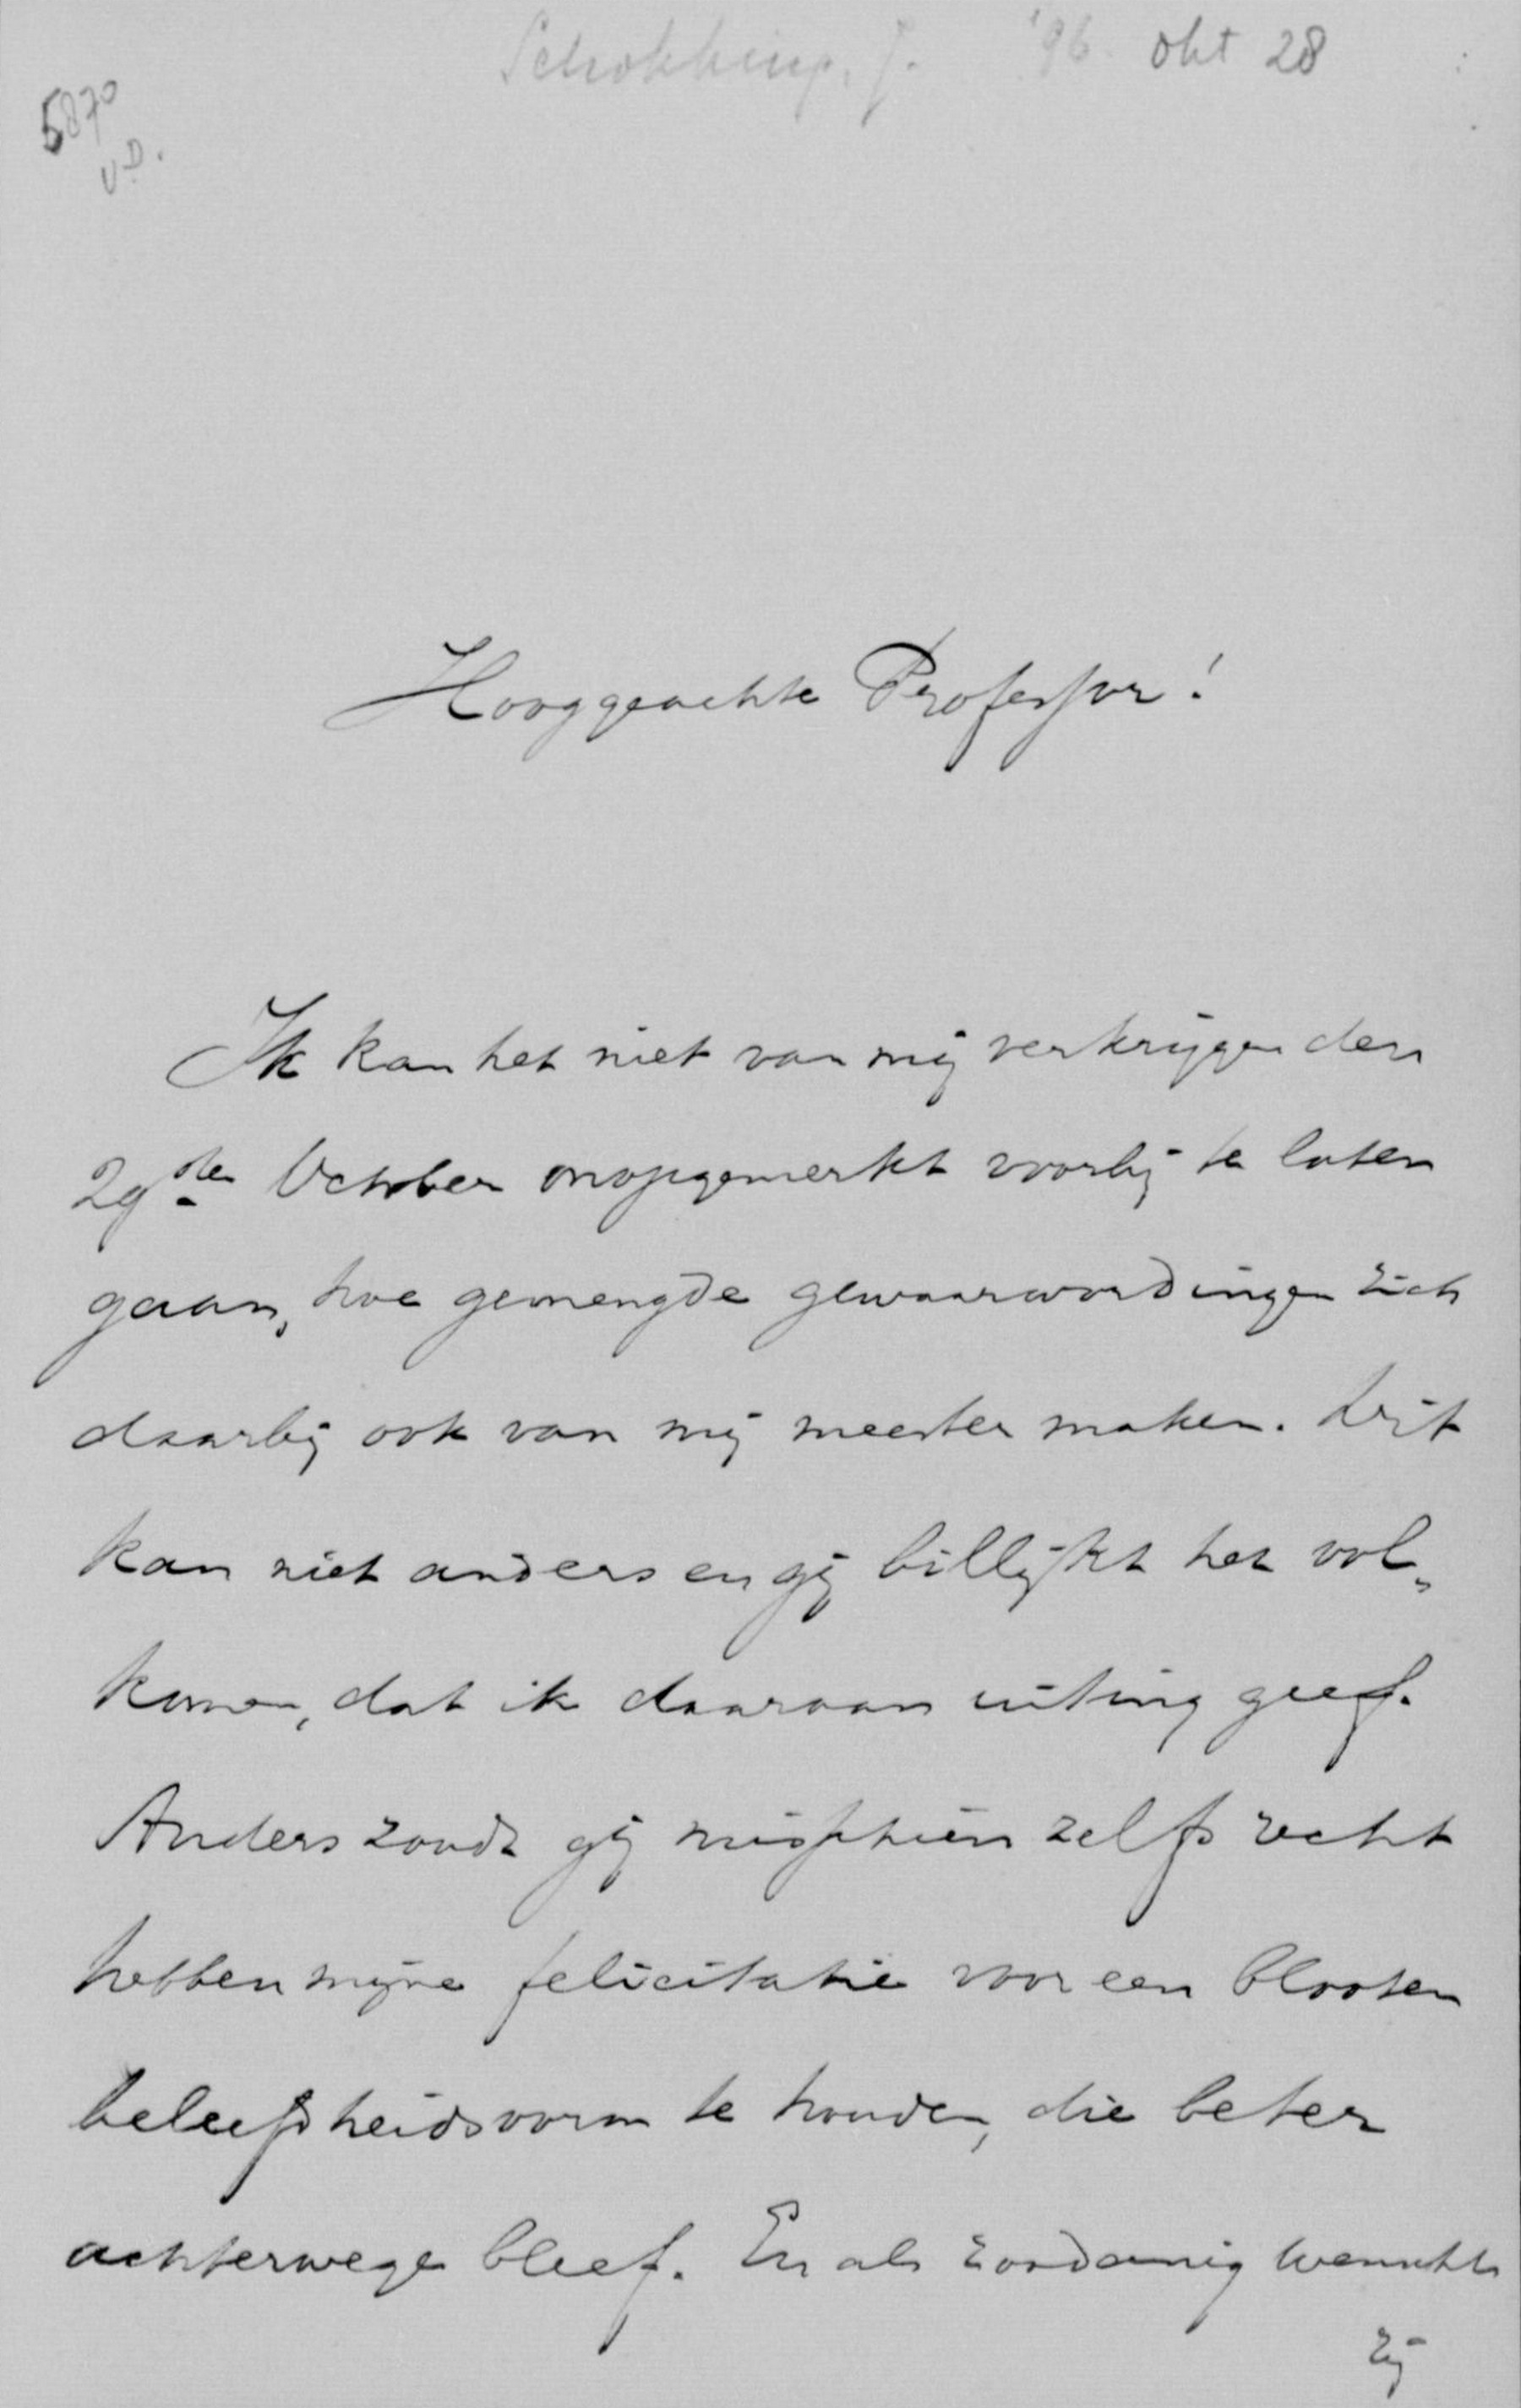 Schokking, J. '96 okt 28
5870
v.D.
Hooggeachte Professor!
Ik kan het niet van mij verkrijgen den
29sten October onopgemerkt voorbij te laten
gaan, hoe gemengde gewaarwordingen zich
daarbij ook van mij meester maken. Dit
kan niet anders en gij billijkt het vol„
komen, dat ik daaraan uiting geef.
Anders zoudt gij misschien zelfs recht
hebben mijne felicitatie voor een blooten
beleefdheidsvorm te houden, die beter
achterwege bleef. En als zoodanig wenscht
zij